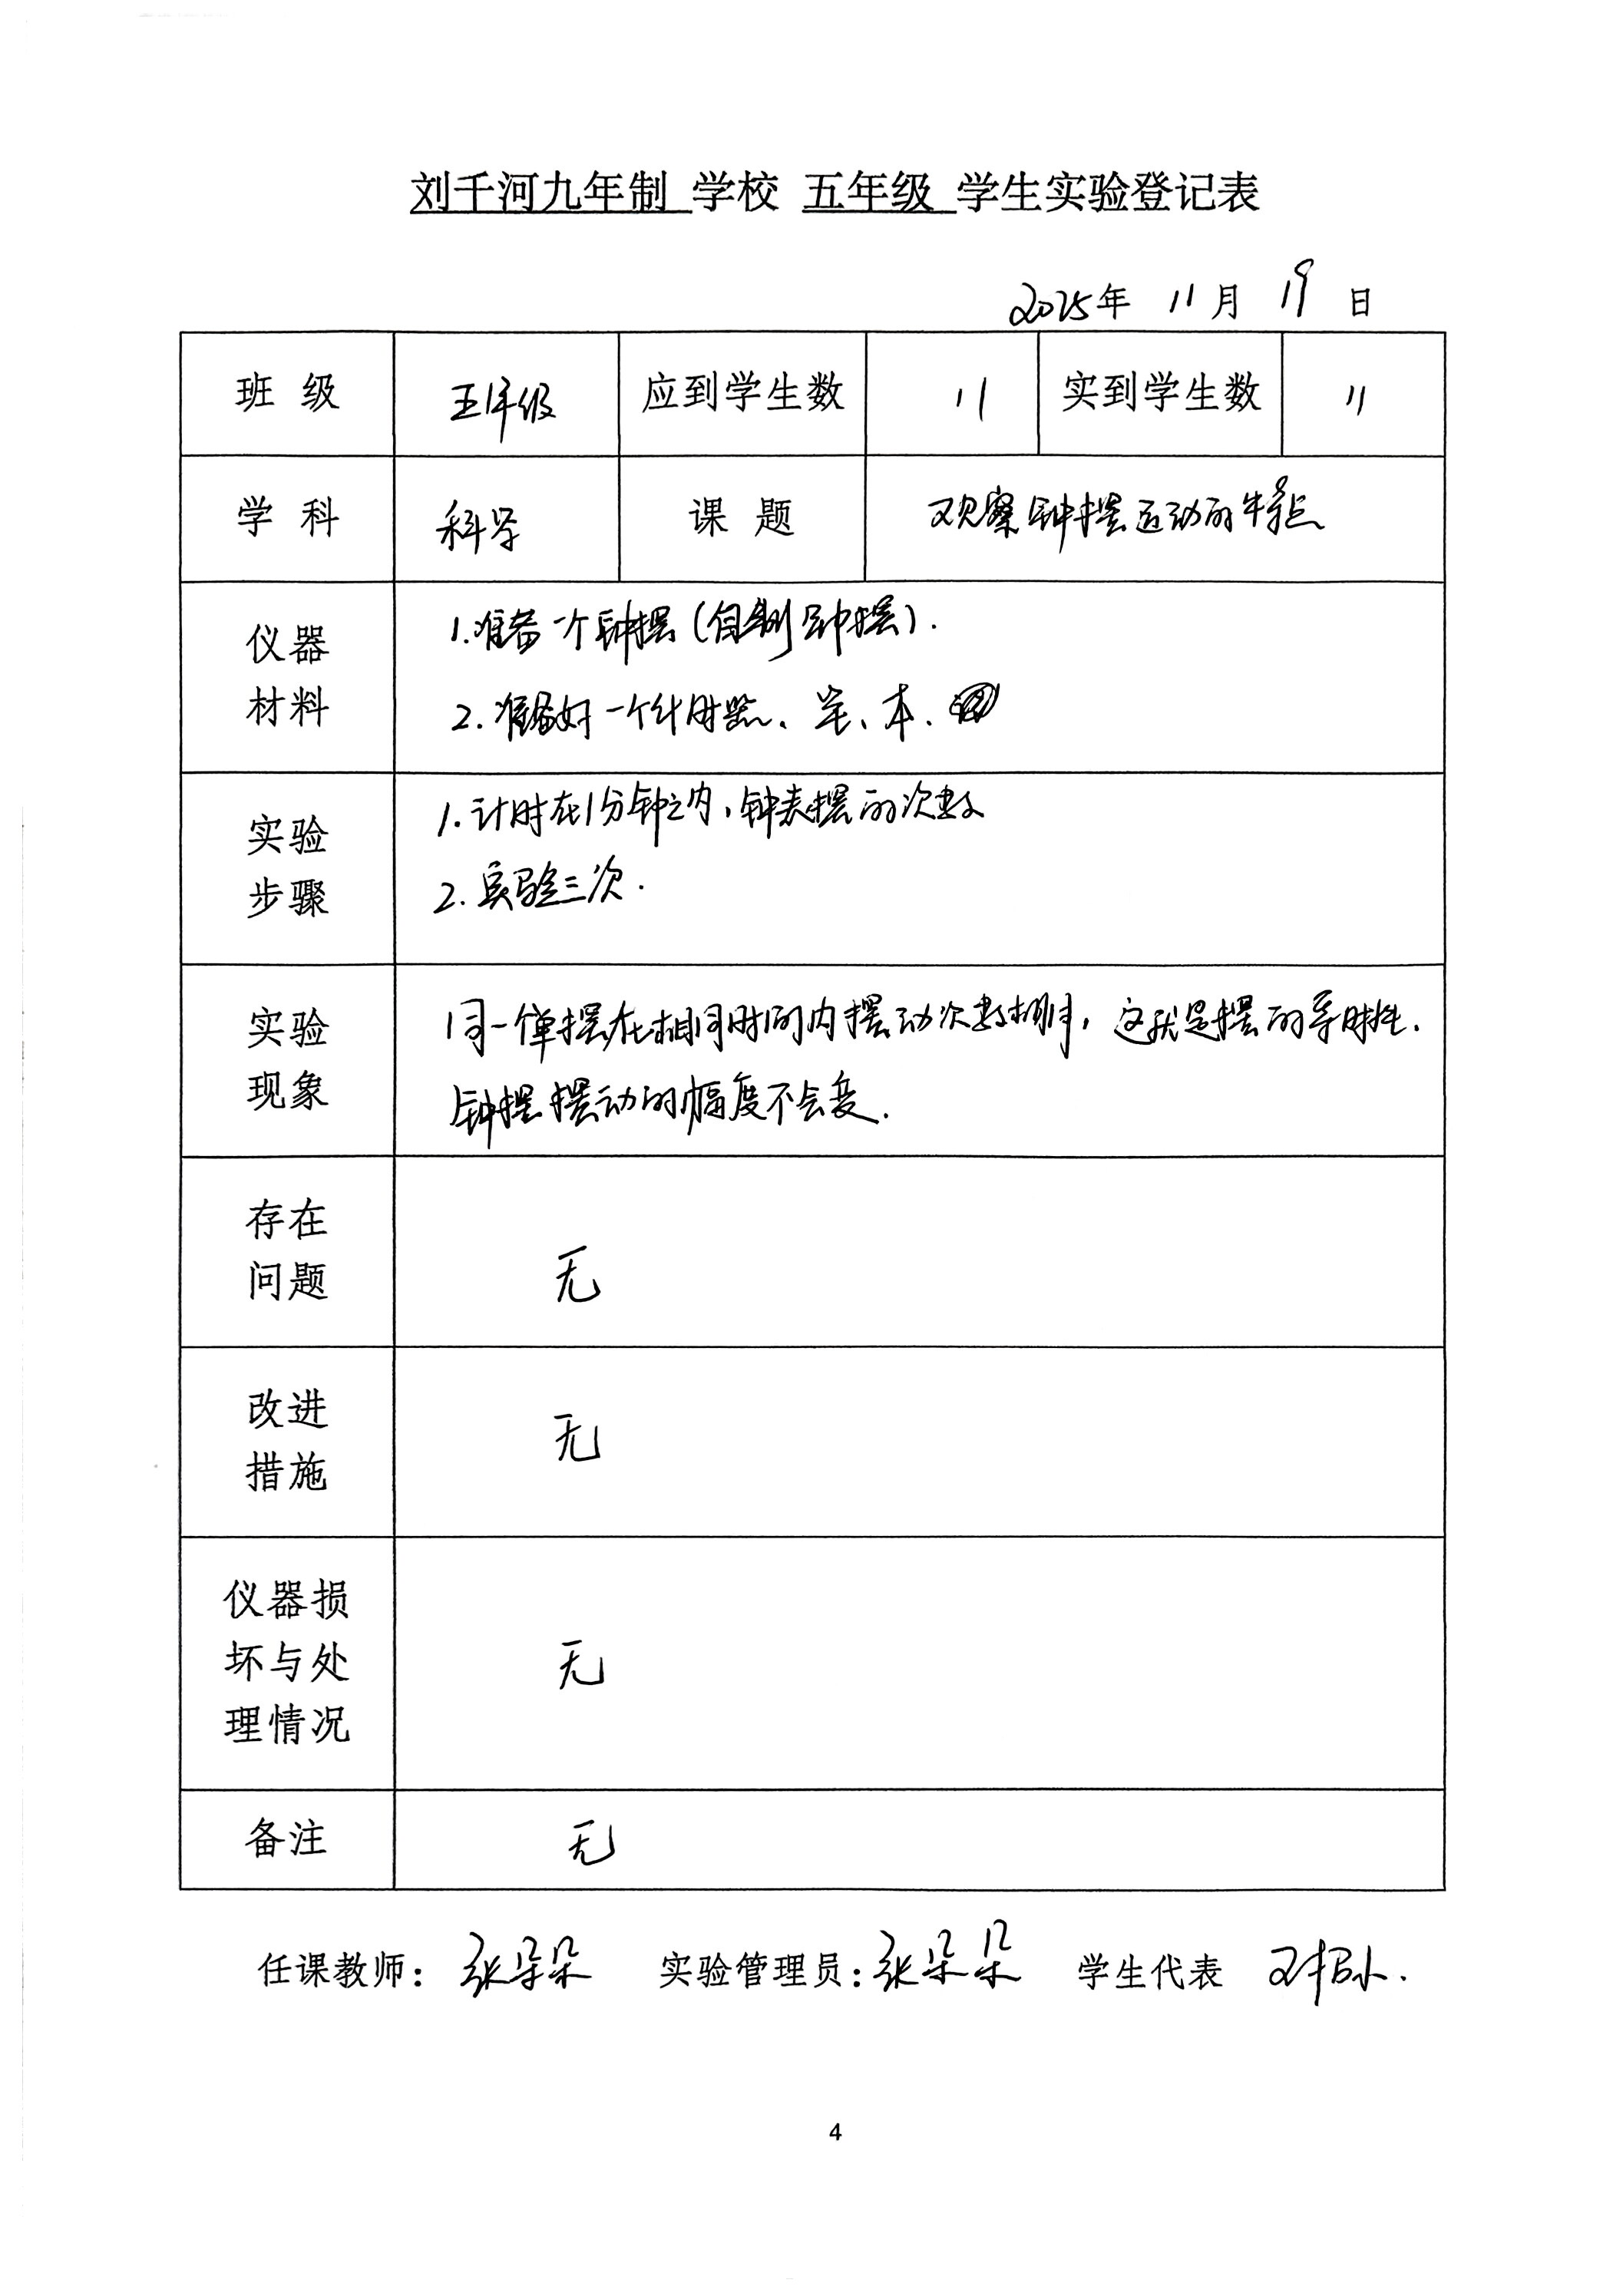 刘千河九年制 学校 五年级 学生实验登记表
2025年 11月 19日
班 级 五年级 应到学生数 11 实到学生数 11
学 科 科学 课 题 观察钟摆运动的特点
仪器
材料
1.准备一个钟摆(自制钟摆).
2.准备好一个计时器、笔、本、
实验
步骤
1.计时在1分钟之内,钟表摆的次数
2.实验三次.
实验
现象
同一个单摆在相同时间内摆动次数相同,这就是摆的等时性.
钟摆摆动的幅度不会变.
存在
问题
无
改进
措施
无
仪器损
坏与处
理情况
无
备注 无
任课教师: 张朵朵 实验管理员:张朵朵 学生代表
4